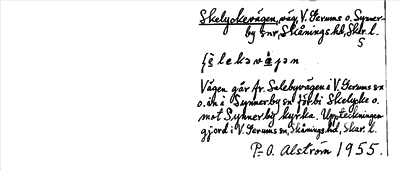 Skelyckevägen, väg, V. Gerums o. Synner-
by snr, Skånings hd, Skar. l.
5
Vägen går fr. Salebyvägen i V. Gerums sn
o. in i Synnerby sn förbi Skelycke o.
mot Synnerby kyrka. Uppteckningen
gjord i V. Gerums sn, Skånings hd, Skar. l.
P-O. Alström 1955.